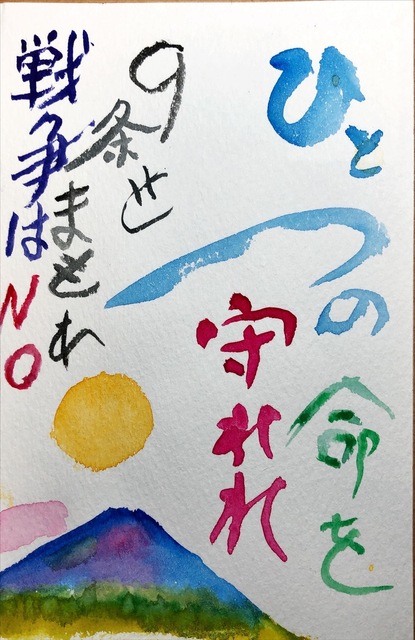 ひとつの命を
守れれ
9条を
まもれ
戦争はNO